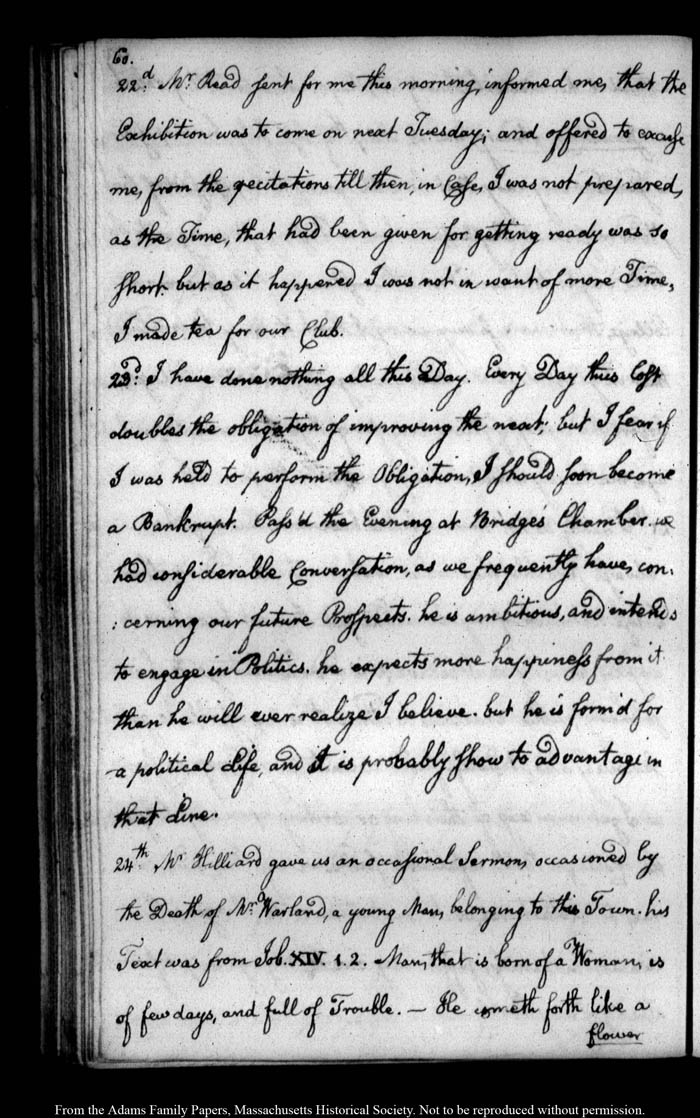 60.
22.d Mr. Read sent for me this morning, informed me, that the
Exhibition was to come on next Tuesday; and offered to excuse
me, from the recitations till then, in Case, I was not prepared,
as the Time, that had been given for getting ready was so
short. but as it happened I was not in want of more Time,
I made tea for our Club.
23d. I have done nothing all this Day. Every Day thus lost
doubles the obligation of improving the next; but I fear if
I was held to perform the Obligation, I should soon become
a Bankrupt. Pass'd the Evening at Bridge's Chamber. we
had considerable Conversation, as we frequently have, con:
:cerning our future Prospects. he is ambitious, and intends
to engage in Politics. he expects more happiness from it
than he will ever realize I believe. but he is form'd for
a political Life, and it is probably show to advantage in
that Line.
24th. Mr. Hilliard gave us an occasional Sermon, occasioned by
the Death of Mr. Warland, a young Man, belonging to this Town. his
Text was from Job. XIV. 1. 2. Man, that is born of a Woman, is
of few days, and full of Trouble. — He cometh forth like a
flower
From the Adams Family Papers, Massachusetts Historical Society. Not to be reproduced without permission.